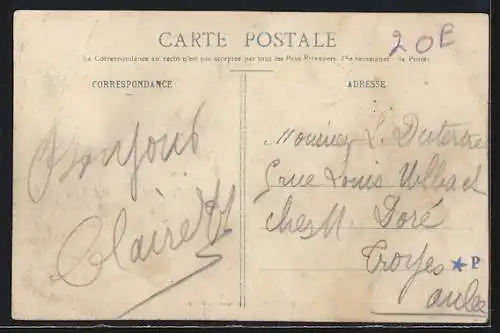 CARTE POSTALE
20F
La Correspondance au recto n'est pas acceptée par tous les Pays Étrangers (Se renseigner à la Poste)
CORRESPONDANCE
ADRESSE
Bonjour
Claire
Monsieur L. Dutertre
5 rue Louis Ulbach
Ches M. Doré
Troyes
P
aube